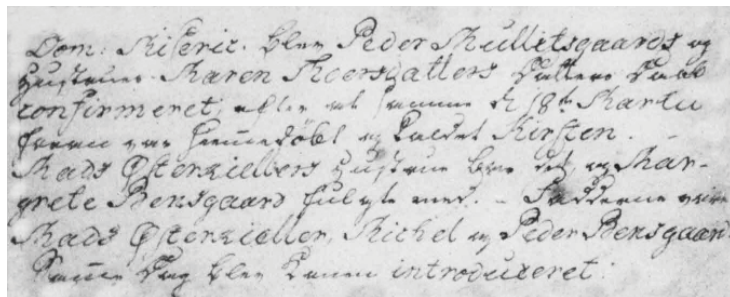 Dom: Miseric. blev Peder Mullitsgaards og
Hustrues Maren Thoersdatters Datters Daab
confirmeret, efter at samme d 18de Martii
foran var hiemmedöbt og kaldet Kirsten. -
Mads Østerkiellers Hustrue bar det og Mar-
grete Bensgaard fulgte med. - Fadderne vare
Mads Østerkieller, Michel og Peder Bensgaard.
Samme Dag blev Konen introduceret.